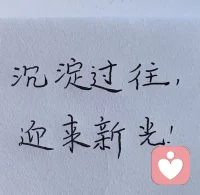 沉淀过往,
迎来新光!